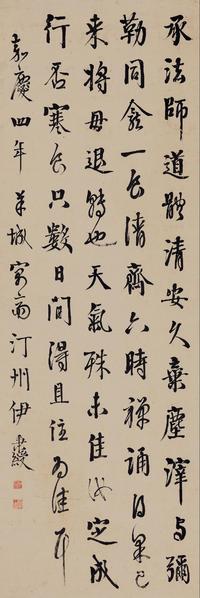 承法師道體清安久棄塵滓与彌
勒同龕一食清齊六時禪誦得果已
来將毋退轉也天氣殊未佳汝定成
行否寒食只數日間得且住為佳耳
嘉慶四年羊城寓齋汀州伊秉綬